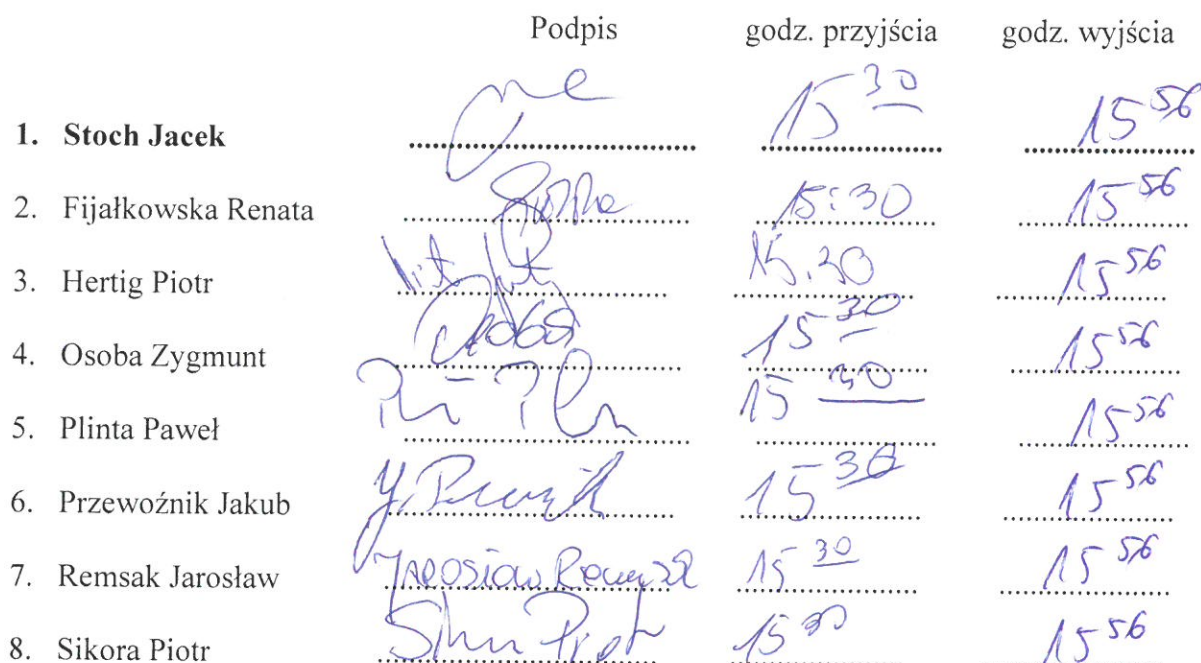 Podpis godz. przyjścia godz. wyjścia
1. Stoch Jacek 15 30 15 56
2. Fijałkowska Renata 15:30 15 56
3. Hertig Piotr 15.30 15 56
4. Osoba Zygmunt Osoba 15 30 15 56
5. Plinta Paweł 15 30 15 56
6. Przewoźnik Jakub 15 30 15 56
7. Remsak Jarosław Jarosław Remsak 15 30 15 56
8. Sikora Piotr Piotr 15 30 15 56